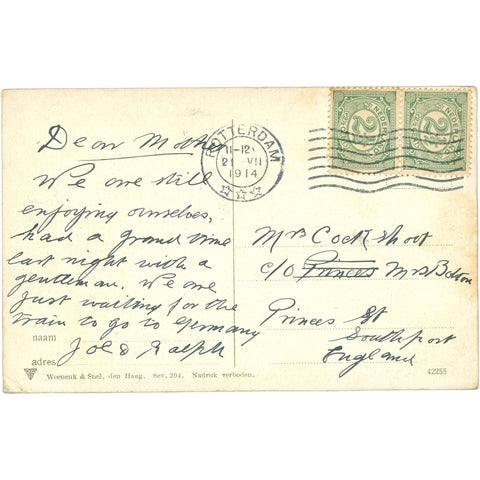 Dear Mother
We are still
enjoying ourselves,
had a grand time
last night with a
gentleman. We are
just waiting for the
train to go to Germany
Joe & Ralph
naam
adres
Weenenk & Snel, den Haag. Sev. 204. Nadruk verboden.
ROTTERDAM
11-12
21 VII
1914
NEDERLAND
2½
2½
Mrs Cockshoot
c/o Princes Mrs Bolton
Princes St
Southport
England
42255